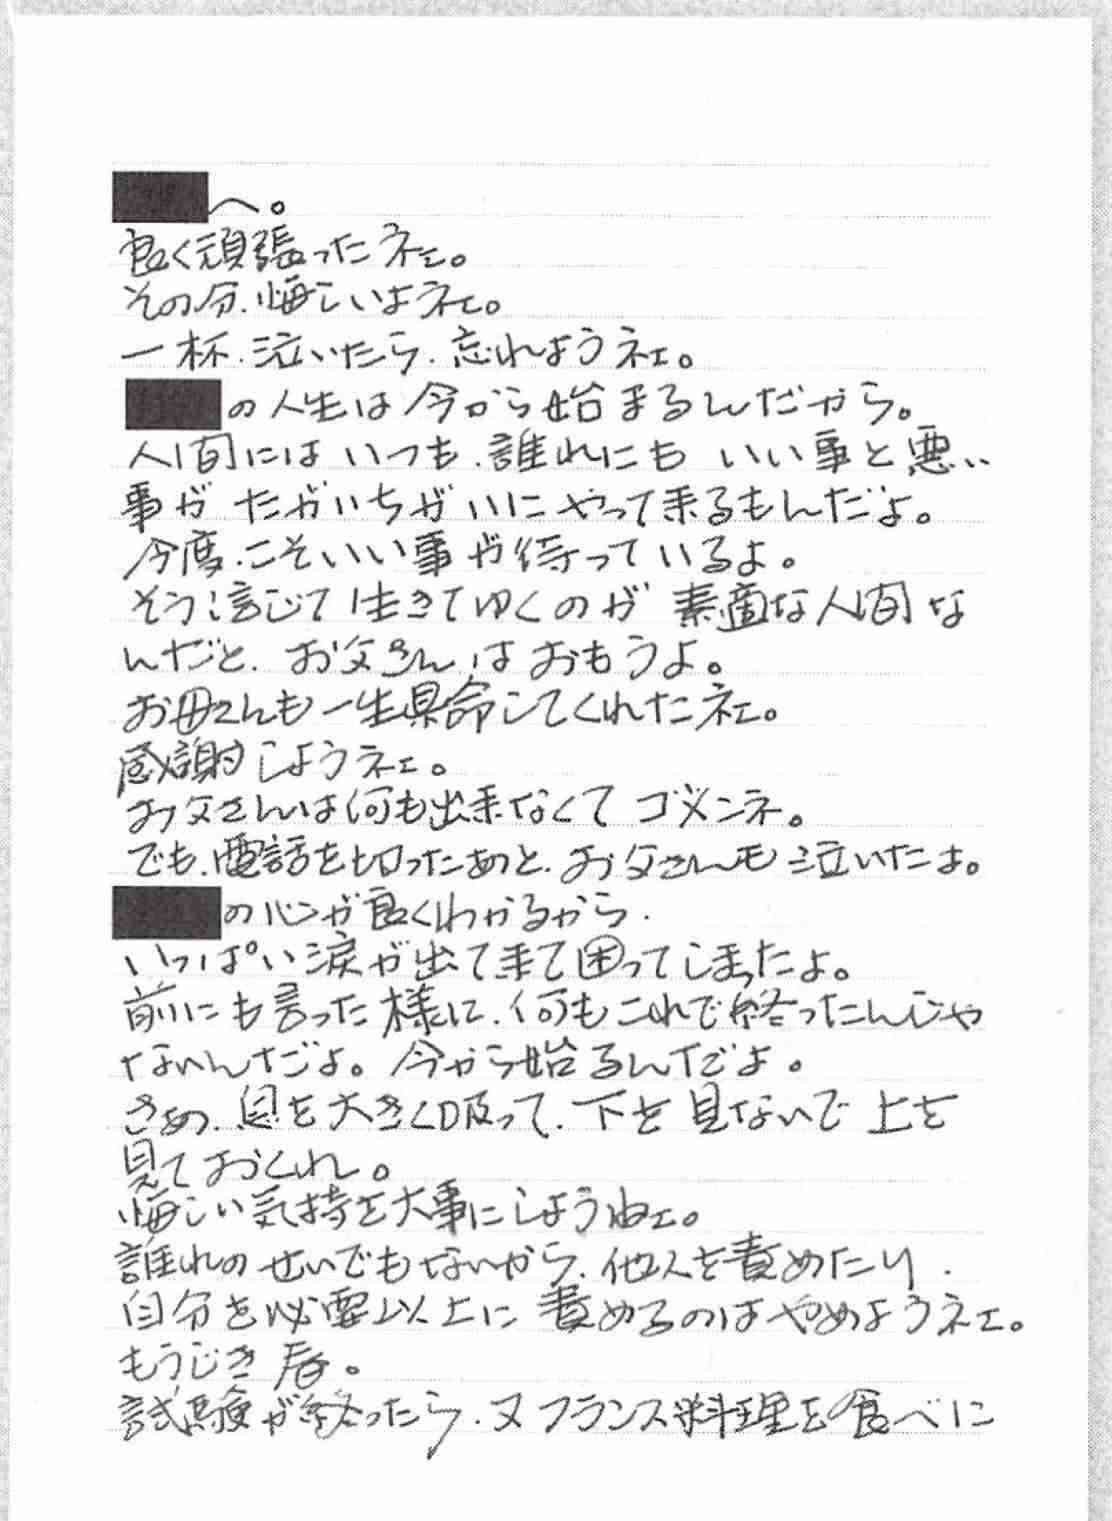 へ。
良く頑張ったネェ。
その分、悔しいよネェ。
一杯、泣いたら、忘れようネェ。
の人生は今から始まるんだから。
人間にはいつも、誰れにも いい事と悪い
事が たがいちがいにやって来るもんだよ。
今度、こそいい事が待っているよ。
そう信じて生きてゆくのが 素適な人間な
んだと、お父さんはおもうよ。
お母さんも一生県命してくれたネェ。
感謝しようネェ。
お父さんは何も出来なくて ゴメンネ。
でも、電話を切ったあと、お父さんも泣いたよ。
の心が良くわかるから、
いっぱい涙が出て来て困ってしまったよ。
前にも言った様に、何もこれで終ったんじゃ
ないんだよ。今から始るんだよ。
さあっ、息を大きく吸って、下を見ないで上を
見ておくれ。
悔しい気持を大事にしようねェ。
誰れのせいでもないから、他人を責めたり、
自分を必要以上に責めるのはやめようネェ。
もうじき春。
試験が終ったら、又フランス料理を食べに